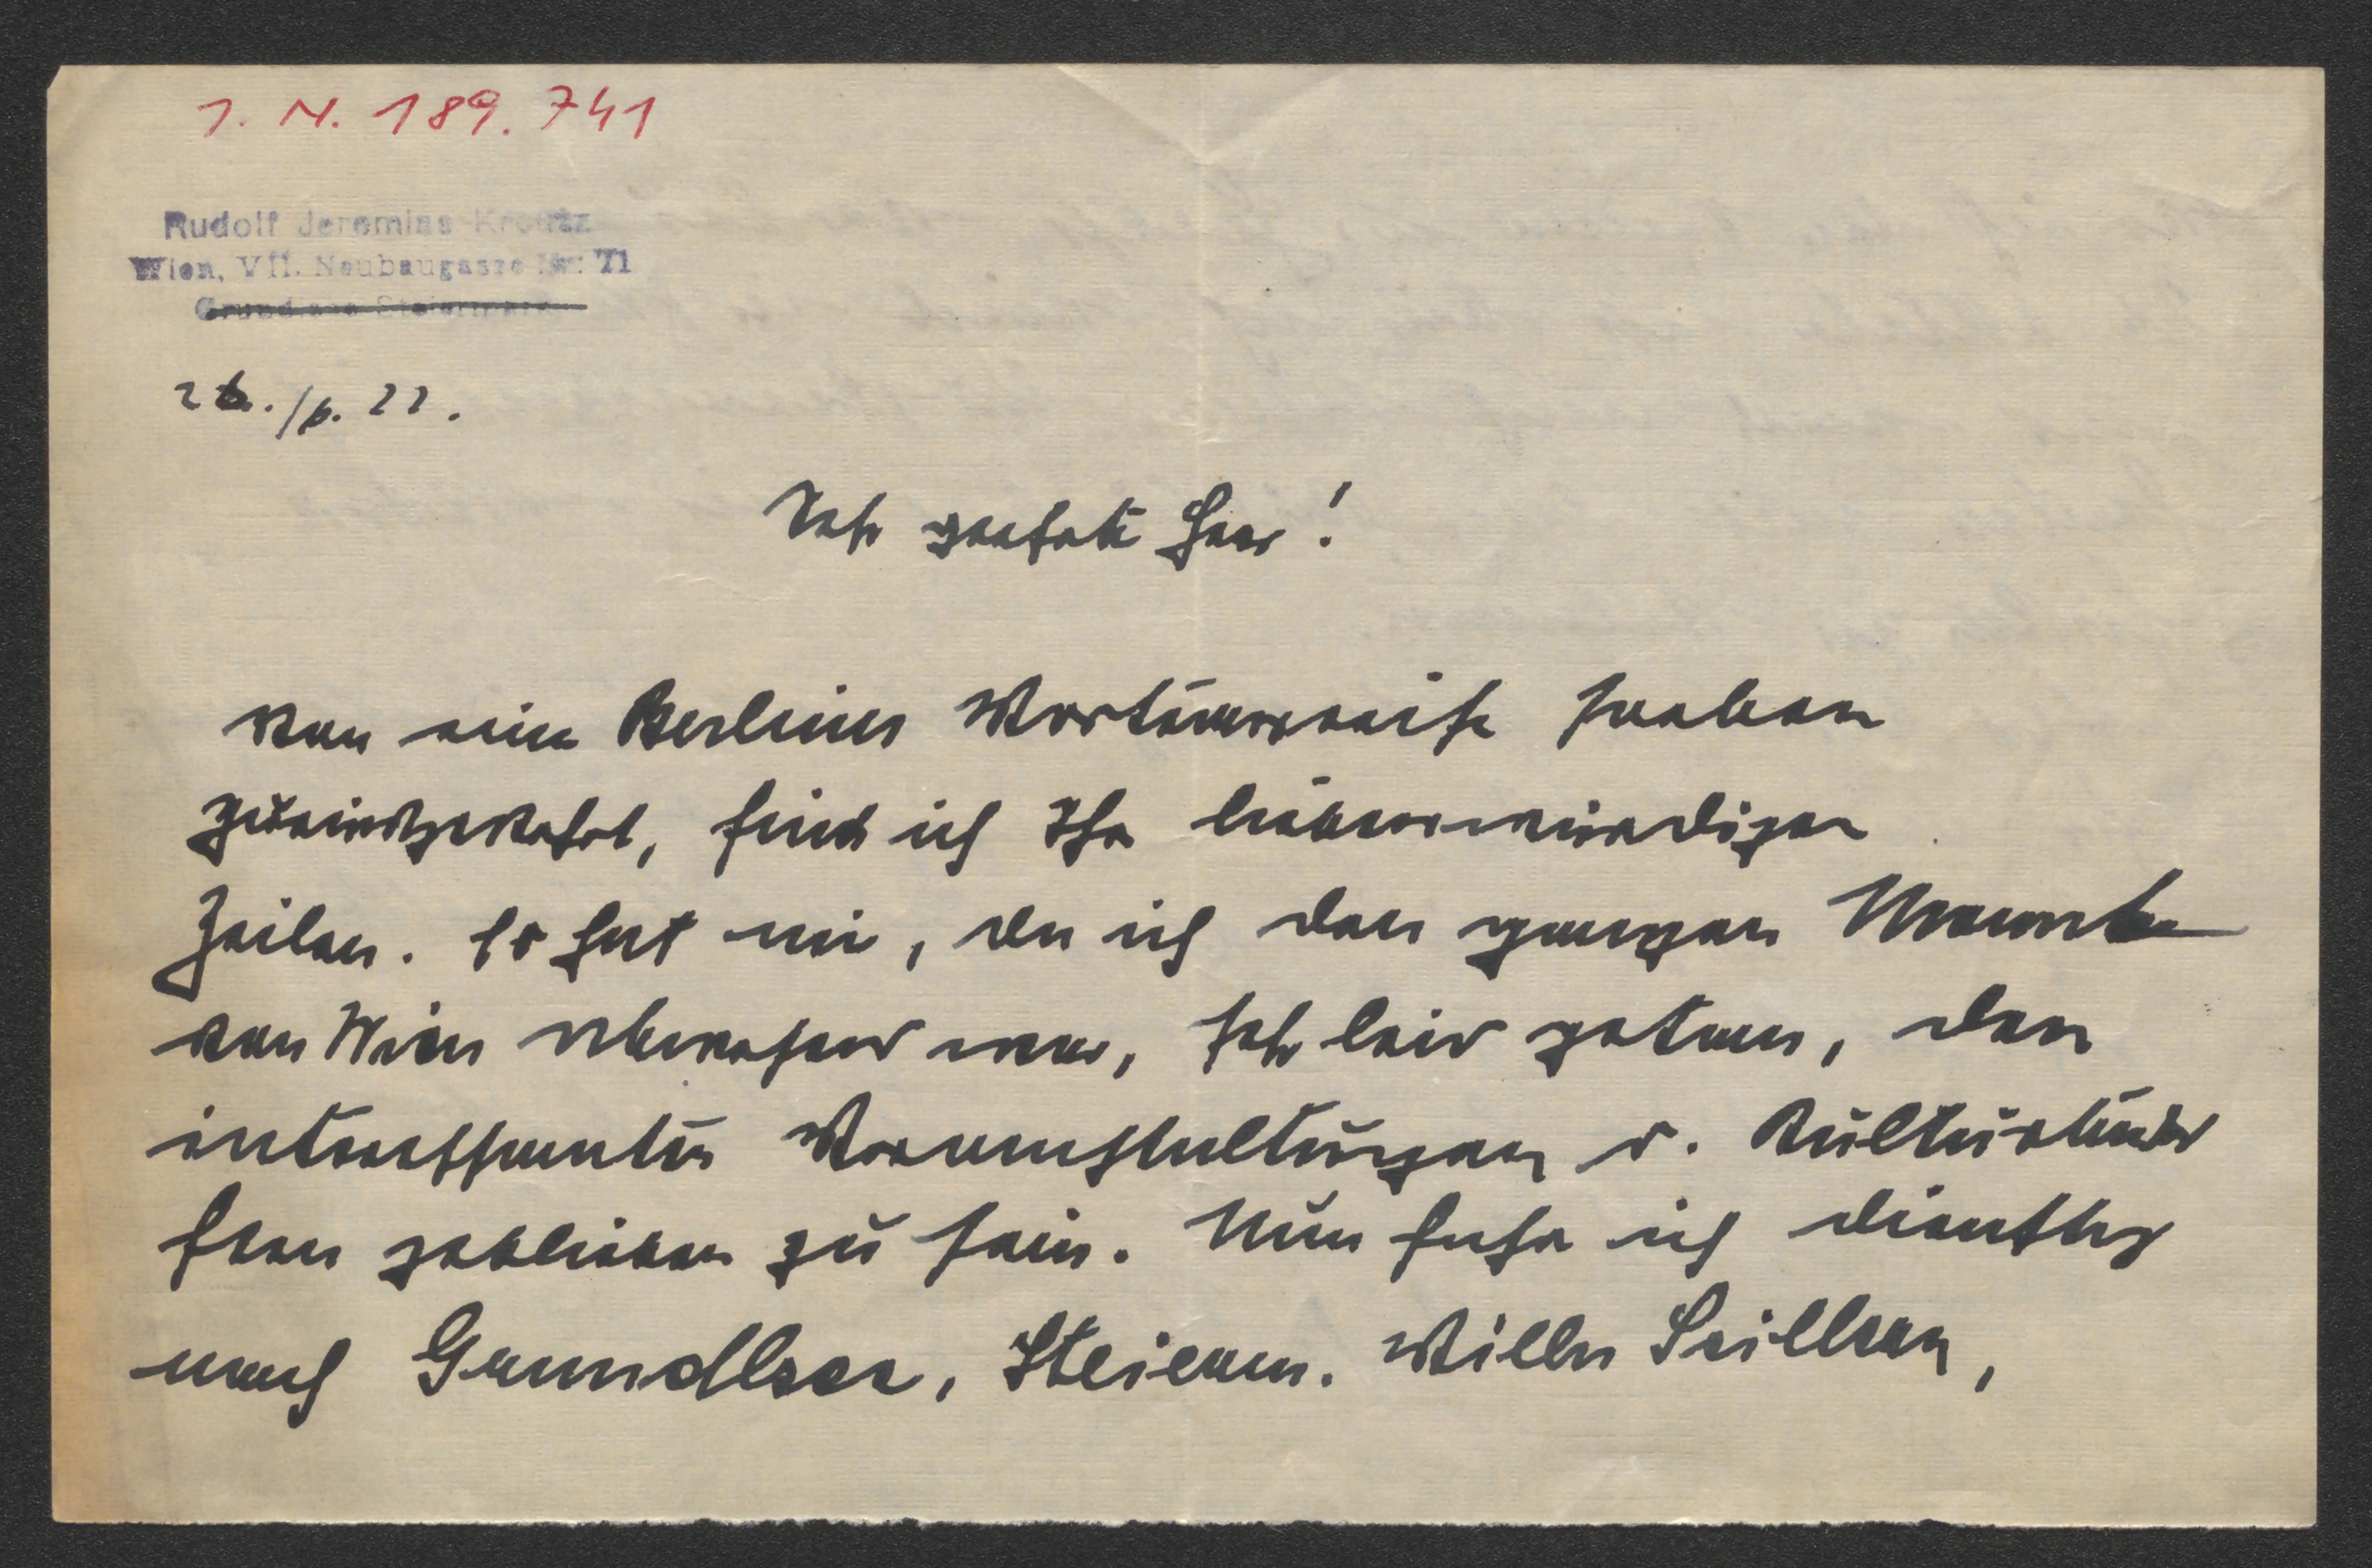 I. N. 189.741
Rudolf Jeremias Kreutz
Wien, VII. Neubaugasse Nr. 71
Grundlsee Steiermark
26./6. 22.
Sehr geehrter Herr!
Von einer Berliner Vortragsreise soeben
zurückgekehrt, finde ich Ihre liebenswürdigen
Zeilen. Es hat mir, da ich den ganzen Monat
von Wien abwesend war, sehr leid getan, den
interessanten Veranstaltungen d. Kulturbundes
fern geblieben zu sein. Nun fahre ich Dienstag
nach Grundlsee, Steierm. Villa